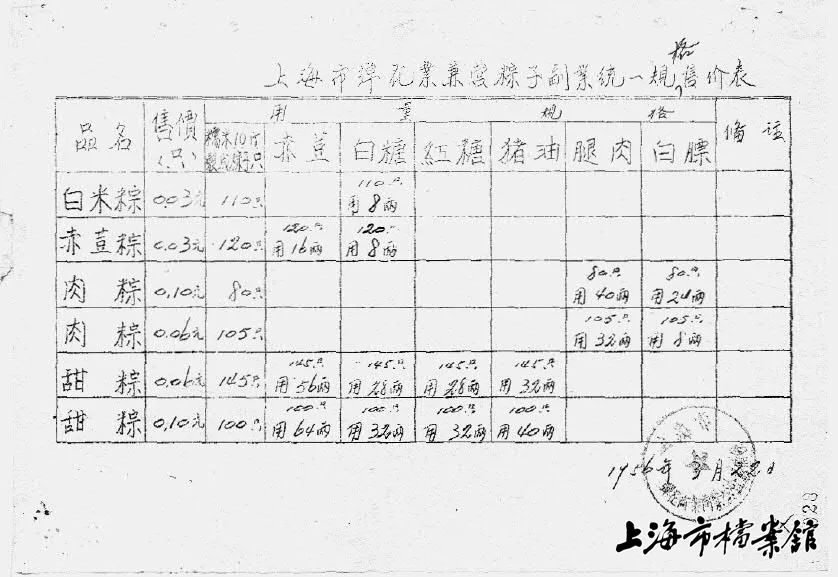 格
上海市弹花業兼营粽子副業統一規售价表
品名 售價(只) 用量規格 备註
糯米10斤製成粽子只 赤荳 白糖 紅糖 猪油 腿肉 白膘
白米粽 0.03元 110只 110只用8两
赤荳粽 0.03元 120只 120只用16两 120只用8两
肉粽 0.10元 80只 80只用40两 80只用24两
肉粽 0.06元 105只 105只用32两 105只用8两
甜粽 0.06元 145只 145只用56两 145只用28两 145只用28两 145只用32两
甜粽 0.10元 100只 100只用64两 100只用32两 100只用32两 100只用40两
1956年 月22日
上海市檔案館